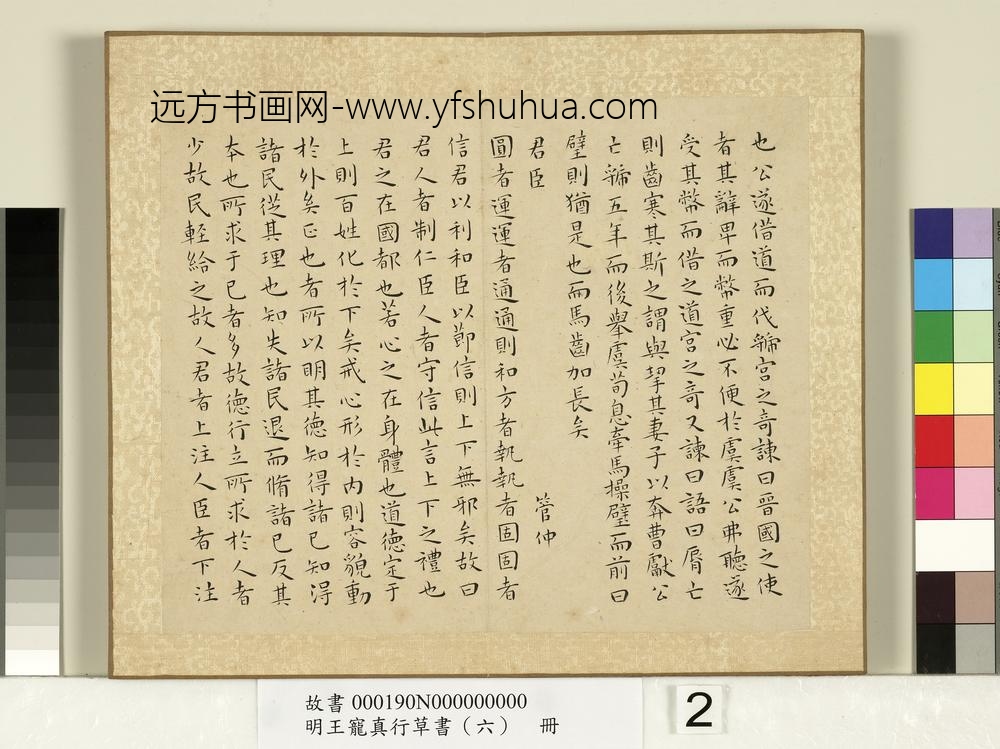 远方书画网-www.yfshuhua.com
也公遂借道而伐虢宮之奇諫曰晉國之使
者其辭卑而幣重必不便於虞虞公弗聽遂
受其幣而借之道宮之奇又諫曰語曰脣亡
則齒寒其斯之謂與挈其妻子以奔曹獻公
亡虢五年而後舉虞荀息牽馬操璧而前曰
璧則猶是也而馬齒加長矣
君臣 管仲
圓者運運者通通則和方者執執者固固者
信君以利和臣以節信則上下無邪矣故曰
君人者制仁臣人者守信此言上下之禮也
君之在國都也若心之在身體也道德定于
上則百姓化於下矣戒心形於內則容貌動
於外矣正也者所以明其德知得諸已知得
諸民從其理也知失諸民退而脩諸已反其
本也所求于已者多故德行立所求於人者
少故民輕給之故人君者上注人臣者下注
故書 000190N000000000
明王寵真行草書（六） 冊
2